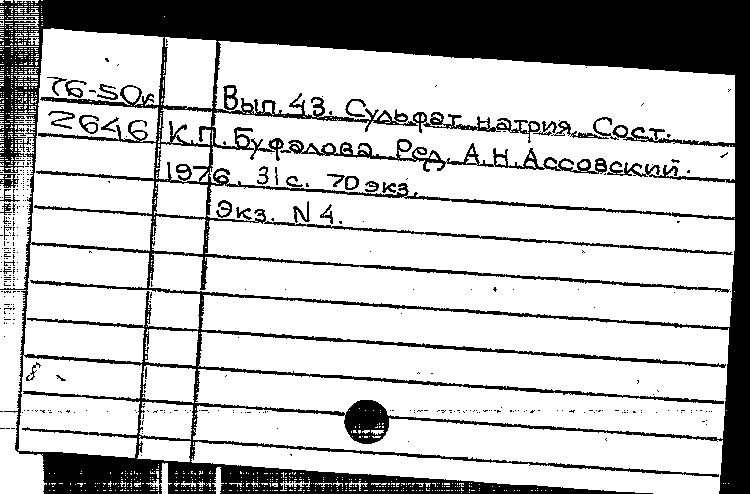 76-50к Вып. 43. Сульфат натрия. Сост.
2646 К.П. Буфалова. Ред. А.Н. Ассовский.
1976. 31 с. 70 экз.
Экз. N 4.
8